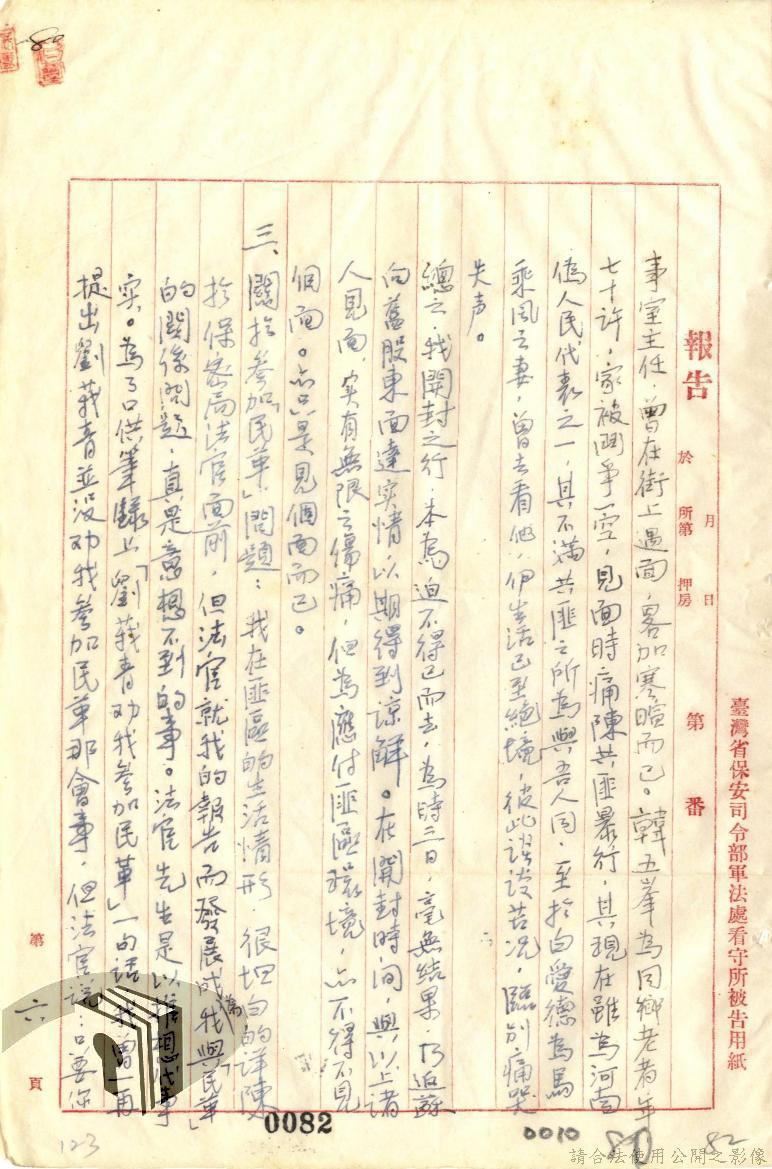 臺灣省保安司令部軍法處看守所被告用紙
報告
於
月 日
所第 押房
第 番
事室主任,曾在街上遇面,畧加寒暄而已。韓五峯為同鄉老者年
七十許,家被鬥爭一空,見面時痛陳共匪暴行,其現在雖為河南
偽人民代表之一,其不滿共匪之所為與吾人同,至於白愛德為馬
乘風之妻,曾去看他,伊生活已至絕境,彼此談苦況,臨別痛哭
失声。
總之,我開封之行,本為迫不得已而去,為時三日,毫無結果,乃返蘇
向舊股東面達實情,以期得到諒解。在開封時間,與以上諸
人見面,實有無限之傷痛,但為應付匪區環境,亦不得不見
個面。亦只是見個面而已。
三、關於參加「民革」問題:我在匪區的生活情形,很坦白的詳陳
於保密局法官面前,但法官就我的報告而發展成「我與民革」
的關係問題,真是意想不到的事。法官先生是以推想代事
实。為了口供筆錄上「劉莪青劝我參加民革」一句話,我曾一再
提出劉莪青並沒劝我參加民革那會事,但法官說:只要你
第 六 頁
0082
0010
82
123
請合法使用公開之影像